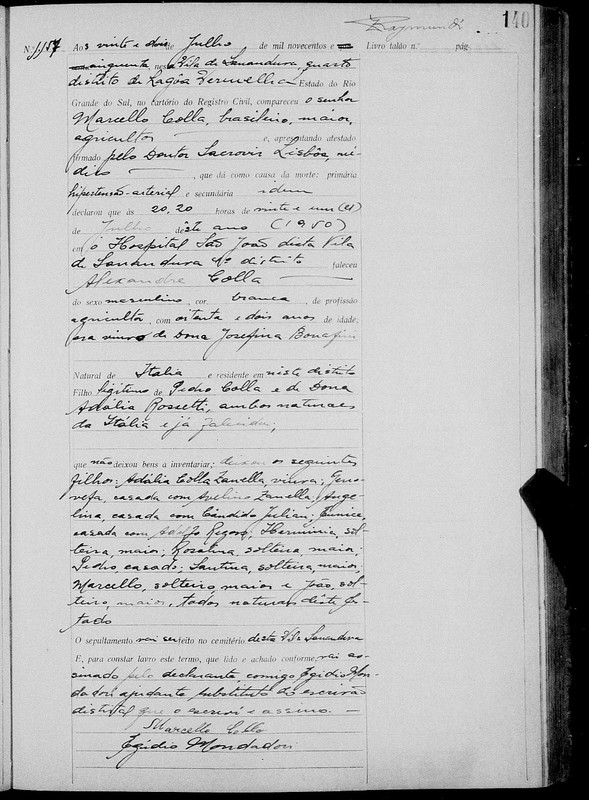 140
Raymundi
N.º 1.157 Aos vinte e dois de Julho de mil novecentos e
cinquenta nesta Vila de Sananduva, quarto
distrito de Lagôa Vermelha Estado do Rio
Grande do Sul, no cartório do Registro Civil, compareceu o senhor
Marcello Colla, brasileiro, maior,
agricultor e, apresentando atestado
firmado pelo Doutor Sacrovir Lisbôa, mé-
dico , que dá como causa da morte: primária
hipertensão-arterial e secundária idem
declarou que às 20,20 horas de vinte e um (21)
de Julho dêste ano (1950)
em o Hospital São João desta Vila
de Sananduva 4º distrito faleceu
Alexandre Colla
do sexo masculino, cor branca, de profissão
agricultor, com oitenta e dois anos de idade,
era viuvo de Dona Josefina Bonafin
Natural de Italia e residente em neste distrito
Filho legitimo de Pedro Colla e de Dona
Adália Rossetti, ambos naturaes
da Itália e já falecidos;
que não deixou bens a inventariar; deixou os seguintes
filhos: Adália Colla Zanella, viuva; Geno-
vefa, casada com Avelino Zanella; Ange-
lina, casada com Cândido Julian; Eunice,
casada com Adolfo Rigoso; Herminia, sol-
teira, maior; Rosalina, solteira, maior;
Pedro, casado; Santina, solteira, maior,
Marcello, solteiro, maior e João, sol-
teiro, maior, todos naturaes dêste Es-
tado
O sepultamento vai ser feito no cemitério desta Vila Sananduva
E, para constar lavro este termo, que lido e achado conforme, vai as-
sinado pelo declarante, comigo Egidio Mon-
dadori ajudante substituto do escrivão
distrital que o escrevi e assino.
Marcello Colla
Egidio Mondadori
Livro talão n.º pág.